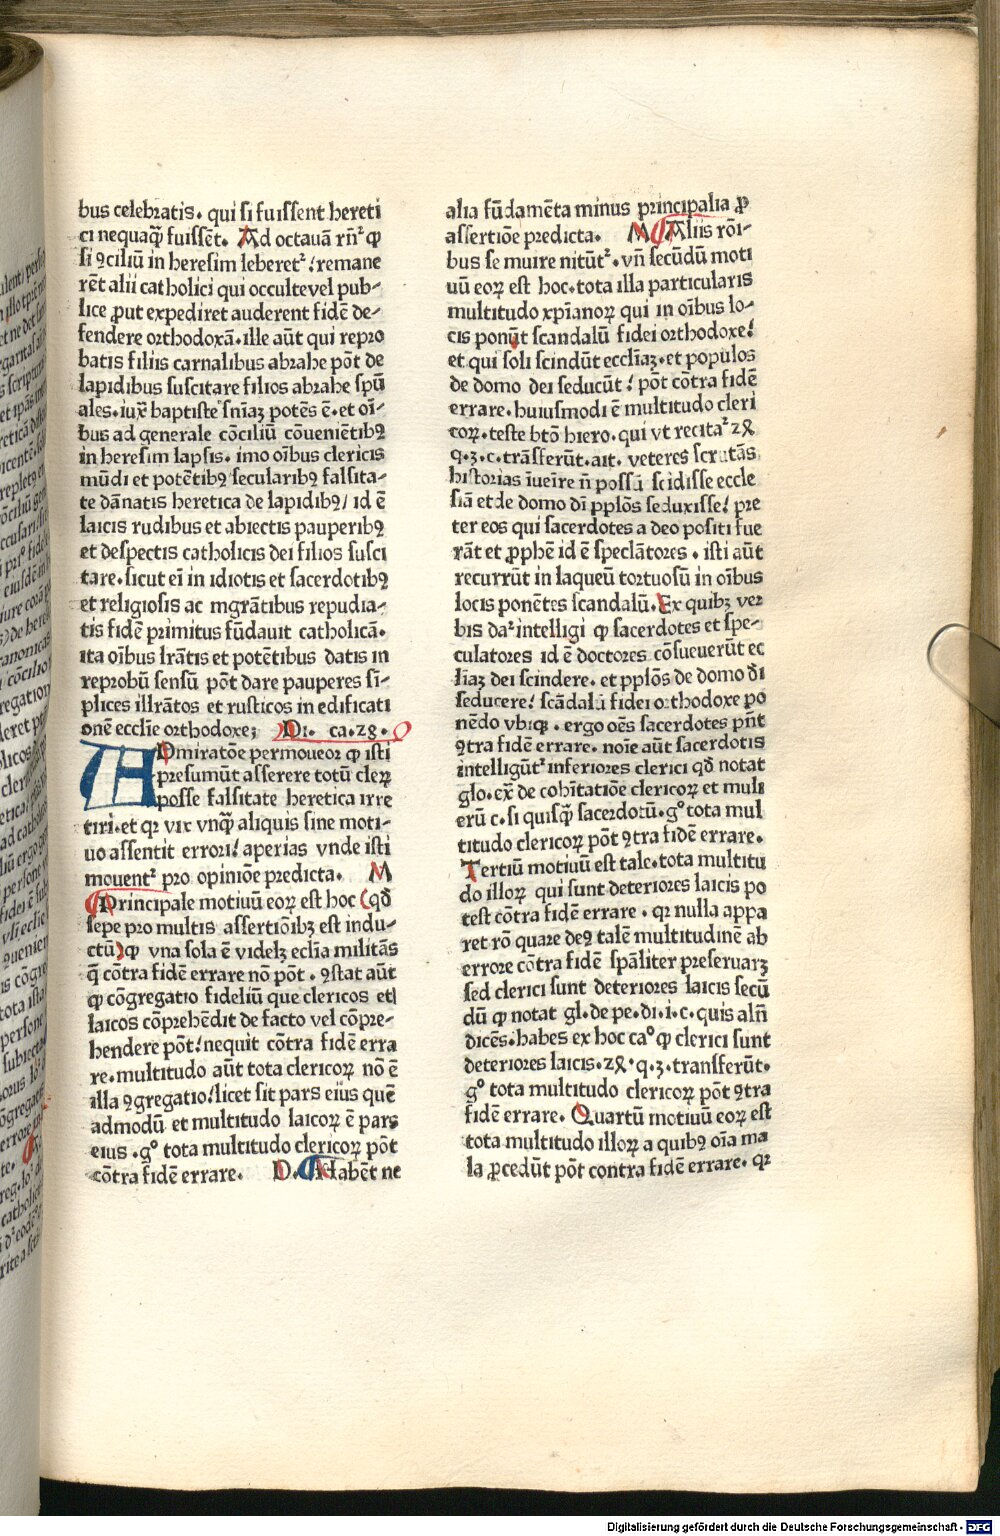 bus celebratis. qui si fuissent hereti
ci nequaq̄ fuissēt. Ad octauā rñ² ꝙ
si ꝯciliū in heresim leberet²/ remane
rēt alii catholici qui occulte vel pub-
lice ꝓut expediret auderent fidē de-
fendere orthodoxā. ille aūt qui repro
batis filiis carnalibus abrahe pōt de
lapidibus suscitare filios abrahe spū
ales. iux̄ baptiste sniaꝫ potēs ē. et oī-
bus ad generale cōciliū cōueniētibꝯ
in heresim lapsis. imo oībus clericis
mūdi et potētibꝯ secularibꝯ falsita-
te dānatis heretica de lapidibꝯ/ id ē
laicis rudibus et abiectis pauperibꝯ
et despectis catholicis dei filios susci
tare. sicut eī in idiotis et sacerdotibꝯ
et religiosis ac mgrātibus repudia-
tis fidē primitus fūdauit catholicā.
ita oībus lrātis et potētibus datis in
reprobū sensū pōt dare pauperes sī-
plices illrātos et rusticos in edificati
onē ecclīe orthodoxe; Di. ca.28.
ADmiratōe permoueor ꝙ isti
presumūt asserere totū clerꝝ
posse falsitate heretica irre
tiri. et qꝛ vix vnq̄ aliquis sine moti-
uo assentit errori/ aperias vnde isti
mouent² pro opiniōe predicta. M
Principale motiuū eoꝝ est hoc (qđ
sepe pro multis assertiōibꝫ est indu-
ctū) ꝙ vna sola ē videlꝫ eclīa militās
q̄ cōtra fidē errare nō pōt. ꝯstat aūt
ꝙ cōgregatio fideliū que clericos et
laicos cōprehēdit de facto vel cōpre-
hendere pōt/ nequit cōtra fidē erra
re. multitudo aūt tota clericoꝝ nō ē
illa ꝯgregatio/ licet sit pars eius quē
admodū et multitudo laicoꝝ ē pars
eius. gº tota multitudo clericoꝝ pōt
cōtra fidē errare. D. Habēt ne
alia fūdamēta minus principalia ꝓ
assertiōe predicta. M Aliis rōi-
bus se muire nitūt². vñ secūdū moti
uū eoꝝ est hoc. tota illa particularis
multitudo xpianoꝝ qui in oībus lo-
cis ponūt scandalū fidei orthodoxe/
et qui soli scindūt ecclīaꝫ. et populos
de domo dei seducūt/ pōt cōtra fidē
errare. huiusmodi ē multitudo cleri
coꝝ. teste btō hiero. qui vt recita² 24
q.3.c. trāsferūt. ait. veteres scrutās
historias iuenire ñ possū scidisse eccle
siā et de domo dī pplōs seduxisse/ pre
ter eos qui sacerdotes a deo positi fue
rāt et ꝓphē id ē speclātores. isti aūt
recurrūt in laqueū tortuosū in oībus
locis ponētes scandalū. Ex quibꝫ ver
bis da² intelligi ꝙ sacerdotes et spe-
culatores id ē doctores cōsueuerūt ec
līaꝫ dei scindere. et pplōs de domo dī
seducere/ scādalū fidei orthodoxe po
nēdo vbiqꝫ. ergo oēs sacerdotes pñt
ꝯtra fidē errare. noīe aūt sacerdotis
intelligūt² inferiores clerici qđ notat
glo. ex̄ de cohītatiōe clericoꝝ et muli
erū c. si quisq̄ sacerdotū. gº tota mul
titudo clericoꝝ pōt ꝯtra fidē errare.
Tertiū motiuū est tale. tota multitu
do illoꝝ qui sunt deteriores laicis po
test cōtra fidē errare. qꝛ nulla appa
ret rō quare deꝯ talē multitudinē ab
errore cōtra fidē spāliter preseruarꝫ
sed clerici sunt deteriores laicis secū
dū ꝙ notat gl. de pe. di. i. c. quis alñ
dicēs. habes ex hoc caº ꝙ clerici sunt
deteriores laicis. 24. q.3. transferūt.
gº tota multitudo clericoꝝ pōt ꝯtra
fidē errare. Quartū motiuū eoꝝ est
tota multitudo illoꝝ a quibꝯ oīa ma
la ꝓcedūt pōt contra fidē errare. qꝛ
Digitalisierung gefördert durch die Deutsche Forschungsgemeinschaft - DFG